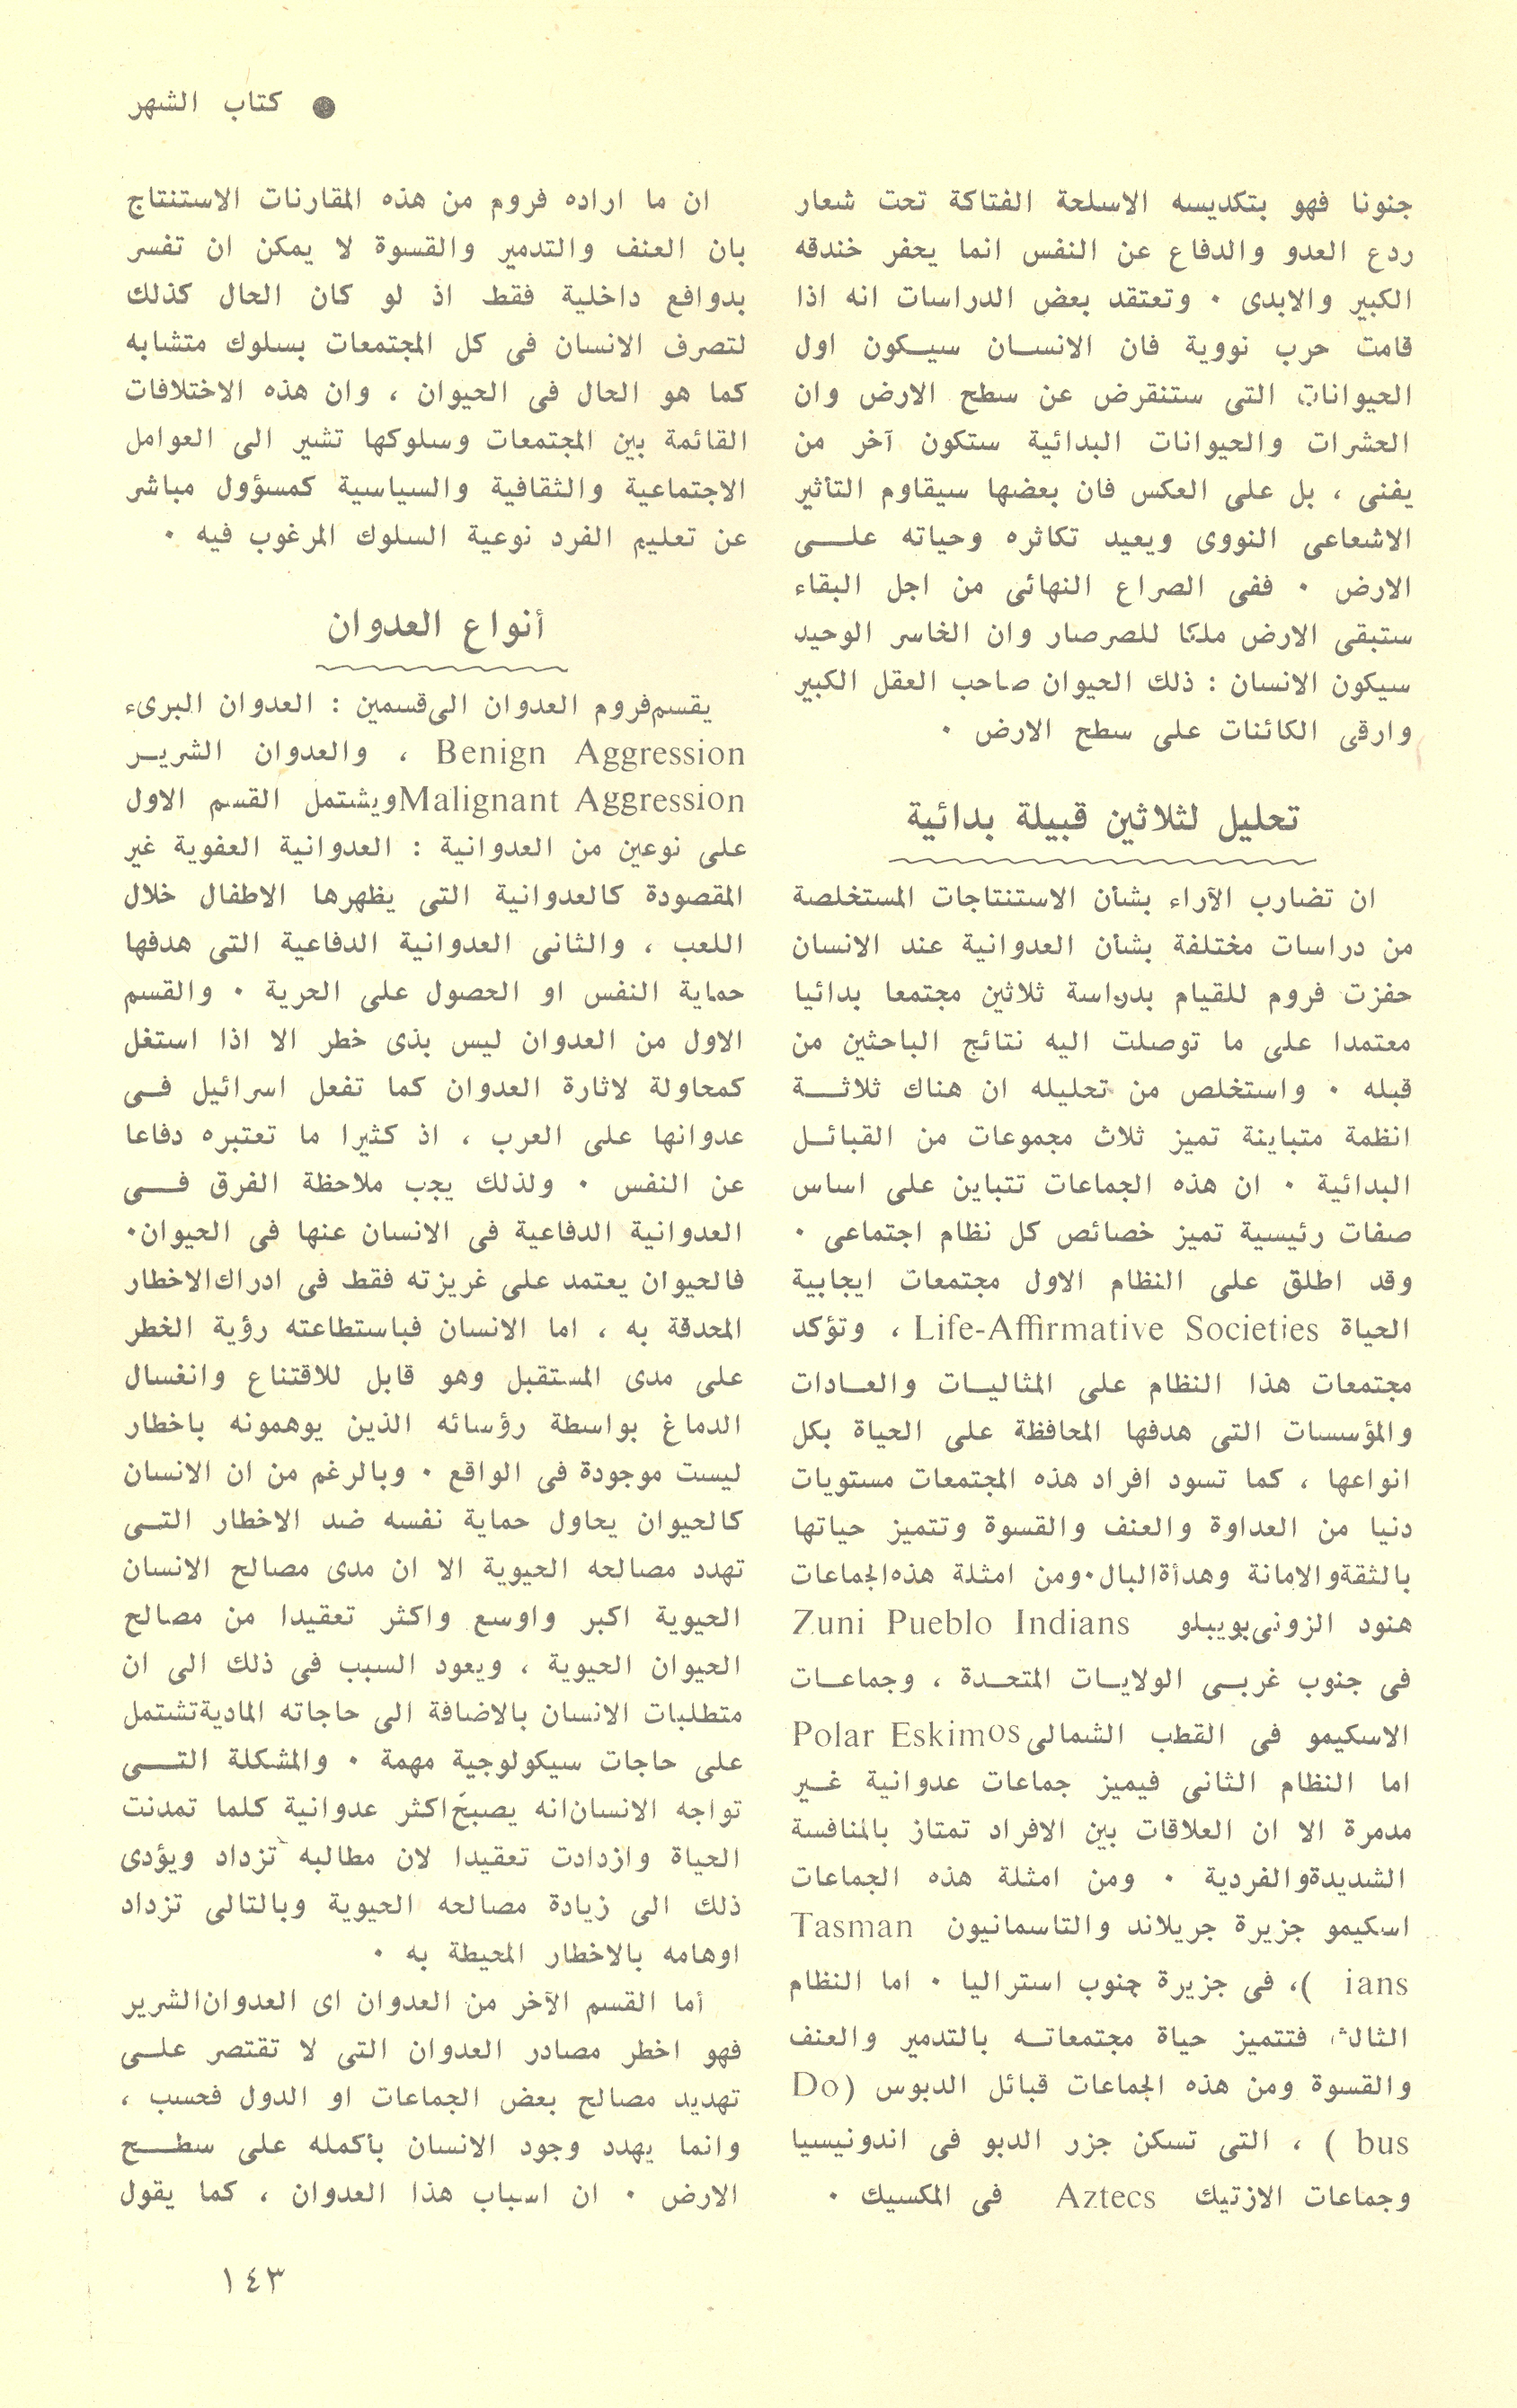 ● كتاب الشهر
جنونا فهو بتكديسه الاسلحة الفتاكة تحت شعار
ردع العدو والدفاع عن النفس انما يحفر خندقه
الكبير والابدى ٠ وتعتقد بعض الدراسات انه اذا
قامت حرب نووية فان الانسان سيكون اول
الحيوانات التى ستنقرض عن سطح الارض وان
الحشرات والحيوانات البدائية ستكون آخر من
يفنى ، بل على العكس فان بعضها سيقاوم التأثير
الاشعاعى النووى ويعيد تكاثره وحياته على
الارض ٠ ففى الصراع النهائى من اجل البقاء
ستبقى الارض ملكا للصرصار وان الخاسر الوحيد
سيكون الانسان : ذلك الحيوان صاحب العقل الكبير
وارقى الكائنات على سطح الارض ٠
تحليل لثلاثين قبيلة بدائية
ان تضارب الآراء بشأن الاستنتاجات المستخلصة
من دراسات مختلفة بشأن العدوانية عند الانسان
حفزت فروم للقيام بدراسة ثلاثين مجتمعا بدائيا
معتمدا على ما توصلت اليه نتائج الباحثين من
قبله ٠ واستخلص من تحليله ان هناك ثلاثة
انظمة متباينة تميز ثلاث مجموعات من القبائل
البدائية ٠ ان هذه الجماعات تتباين على اساس
صفات رئيسية تميز خصائص كل نظام اجتماعى ٠
وقد اطلق على النظام الاول مجتمعات ايجابية
الحياة Life-Affirmative Societies ، وتؤكد
مجتمعات هذا النظام على المثاليات والعادات
والمؤسسات التى هدفها المحافظة على الحياة بكل
انواعها ، كما تسود افراد هذه المجتمعات مستويات
دنيا من العداوة والعنف والقسوة وتتميز حياتها
بالثقة والامانة وهدأة البال ٠ ومن امثلة هذه الجماعات
هنود الزونى بويبلو Zuni Pueblo Indians
فى جنوب غربى الولايات المتحدة ، وجماعات
الاسكيمو فى القطب الشمالى Polar Eskimos
اما النظام الثانى فيميز جماعات عدوانية غير
مدمرة الا ان العلاقات بين الافراد تمتاز بالمنافسة
الشديدة والفردية ٠ ومن امثلة هذه الجماعات
اسكيمو جزيرة جريلاند والتاسمانيون Tasman
ians )، فى جزيرة جنوب استراليا ٠ اما النظام
الثالث فتتميز حياة مجتمعاته بالتدمير والعنف
والقسوة ومن هذه الجماعات قبائل الدبوس (Do
bus ) ، التى تسكن جزر الدبو فى اندونيسيا
وجماعات الازتيك Aztecs فى المكسيك ٠
ان ما اراده فروم من هذه المقارنات الاستنتاج
بان العنف والتدمير والقسوة لا يمكن ان تفسر
بدوافع داخلية فقط اذ لو كان الحال كذلك
لتصرف الانسان فى كل المجتمعات بسلوك متشابه
كما هو الحال فى الحيوان ، وان هذه الاختلافات
القائمة بين المجتمعات وسلوكها تشير الى العوامل
الاجتماعية والثقافية والسياسية كمسؤول مباشر
عن تعليم الفرد نوعية السلوك المرغوب فيه ٠
أنواع العدوان
يقسم فروم العدوان الى قسمين : العدوان البرىء
Benign Aggression ، والعدوان الشرير
Malignant Aggression ويشتمل القسم الاول
على نوعين من العدوانية : العدوانية العفوية غير
المقصودة كالعدوانية التى يظهرها الاطفال خلال
اللعب ، والثانى العدوانية الدفاعية التى هدفها
حماية النفس او الحصول على الحرية ٠ والقسم
الاول من العدوان ليس بذى خطر الا اذا استغل
كمحاولة لاثارة العدوان كما تفعل اسرائيل فى
عدوانها على العرب ، اذ كثيرا ما تعتبره دفاعا
عن النفس ٠ ولذلك يجب ملاحظة الفرق فى
العدوانية الدفاعية فى الانسان عنها فى الحيوان ٠
فالحيوان يعتمد على غريزته فقط فى ادراك الاخطار
المحدقة به ، اما الانسان فباستطاعته رؤية الخطر
على مدى المستقبل وهو قابل للاقتناع وانغسال
الدماغ بواسطة رؤسائه الذين يوهمونه باخطار
ليست موجودة فى الواقع ٠ وبالرغم من ان الانسان
كالحيوان يحاول حماية نفسه ضد الاخطار التى
تهدد مصالحه الحيوية الا ان مدى مصالح الانسان
الحيوية اكبر واوسع واكثر تعقيدا من مصالح
الحيوان الحيوية ، ويعود السبب فى ذلك الى ان
متطلبات الانسان بالاضافة الى حاجاته المادية تشتمل
على حاجات سيكولوجية مهمة ٠ والمشكلة التى
تواجه الانسان انه يصبح اكثر عدوانية كلما تمدنت
الحياة وازدادت تعقيدا لان مطالبه تزداد ويؤدى
ذلك الى زيادة مصالحه الحيوية وبالتالى تزداد
اوهامه بالاخطار المحيطة به ٠
أما القسم الآخر من العدوان اى العدوان الشرير
فهو اخطر مصادر العدوان التى لا تقتصر على
تهديد مصالح بعض الجماعات او الدول فحسب ،
وانما يهدد وجود الانسان بأكمله على سطح
الارض ٠ ان اسباب هذا العدوان ، كما يقول
١٤٣